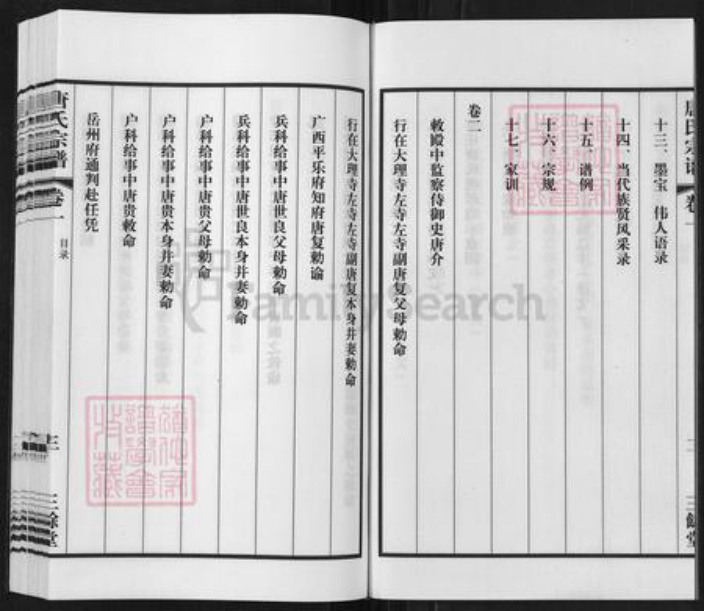 唐氏宗谱 卷一
十三、墨宝 伟人语录
十四、当代族贤风采录
十五、谱例
十六、宗规
十七、家训
卷二
敕殿中监察侍御史唐介
行在大理寺左寺左寺副唐复父母勅命
行在大理寺左寺左寺副唐复本身并妻勅命
广西平乐府知府唐复勅谕
兵科给事中唐世良父母勅命
兵科给事中唐世良本身并妻勅命
户科给事中唐贵父母勅命
户科给事中唐贵本身并妻勅命
户科给事中唐贵敕命
岳州府通判赴任凭
唐氏宗谱 卷一 目录 三 三馀堂
二 三馀堂
FamilySearch